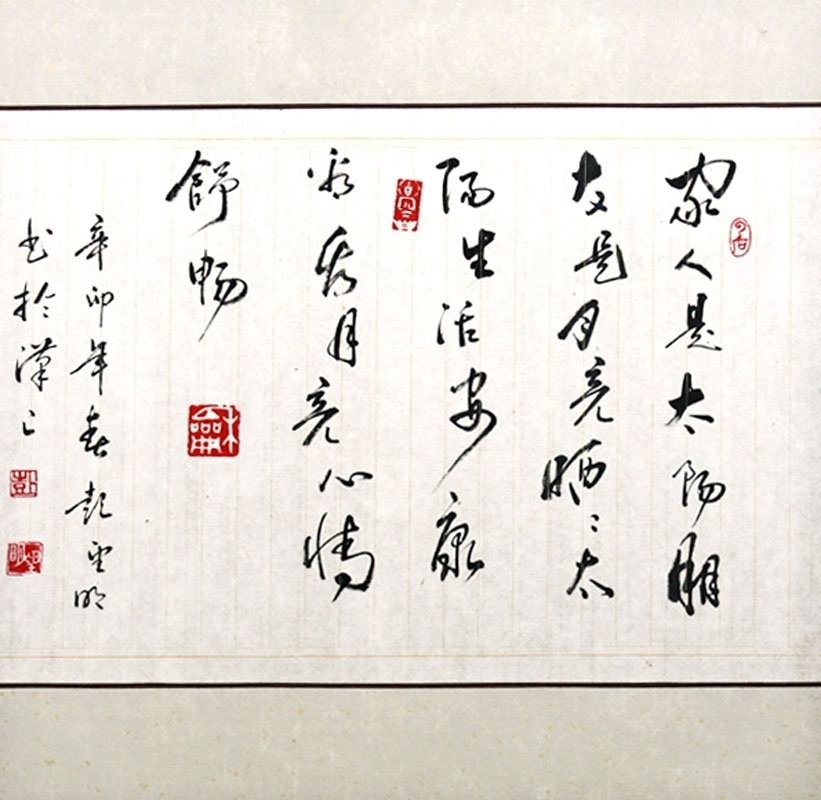 家人是太陽朋
友是月亮晒々太
陽生活安康
看月亮心情
舒畅
辛卯年春彭明
书於漢
彭